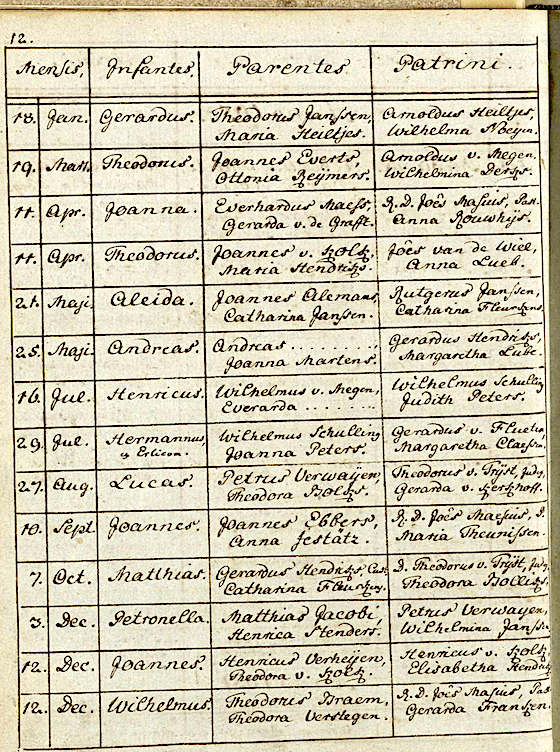 12.
Mensis. Infantes. Parentes Patrini.
18. Jan. Gerardus. Theodorus Janssen, Arnoldus Heiltjes,
Maria Heiltjes. Wilhelma
19. Mart. Theodorus. Joannes Everts, Arnoldus v. Megen,
Ottonia Reijners. Wilhelmina Derks.
11. Apr. Joanna. Everhardus Maess, R. D. Joês Masius, Past.
Gerarda v. de Grafft. Anna Rouwhijs.
11. Apr. Theodorus. Joannes v. Kolk, Joês van de Wiel,
Maria Hendriks. Anna
21. Maji. Aleida. Joannes Alemans, Rutgerus Janssen,
Catharina Janssen. Catharina Fleurkens.
25. Maji. Andreas. Andreas .......... Gerardus Hendriks,
Joanna Martens. Margaretha Lube.
16. Jul. Henricus. Wilhelmus v. Megen, Wilhelmus Schulling
Everarda ........ Judith Peters.
29. Jul. Hermannus, Wilhelmus Schulling Gerardus v.
Joanna Peters. Margaretha Claessen.
27. Aug. Lucas. Petrus Verwaijen, Theodorus v. Trijst, Jud.
Theodora Bolks. Gerarda v. Kerkhoff.
10. Sept. Joannes. Joannes Ebbers, R. D. Joês Maesius, P.
Anna Jestatz. Maria Theunissen.
7. Oct. Matthias. Gerardus Hendriks, Cust. D. Theodorus v. Trijst, Jud.
Catharina Fleurkens. Theodora
3. Dec. Petronella. Matthias Jacobi, Petrus Verwayen,
Henrica Stenders. Wilhelmina Janssen
12. Dec. Joannes. Henricus Verheijen, Henricus v. Kolk,
Theodora v. Kolk. Elisabetha Hendriks
12. Dec. Wilhelmus. Theodorus Braem, R. D. Joês Masius, Pas
Theodora Verstegen. Gerarda Franken.